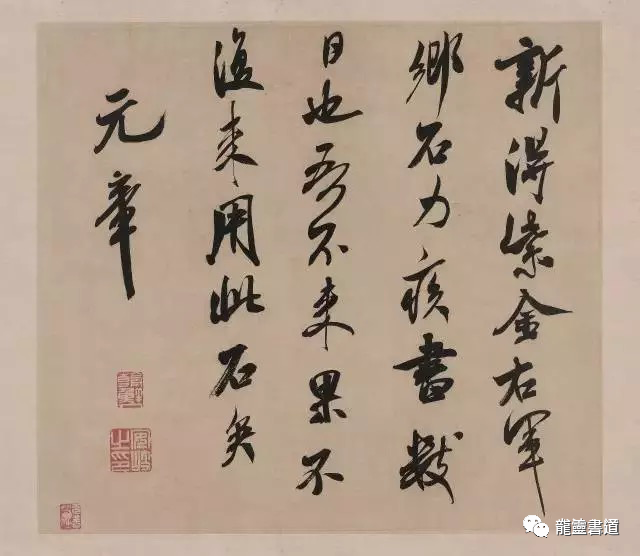 新得紫金右軍
鄉石力疾書數
日也吾不来果不
復来用此石矣
元章
龍鑒書道